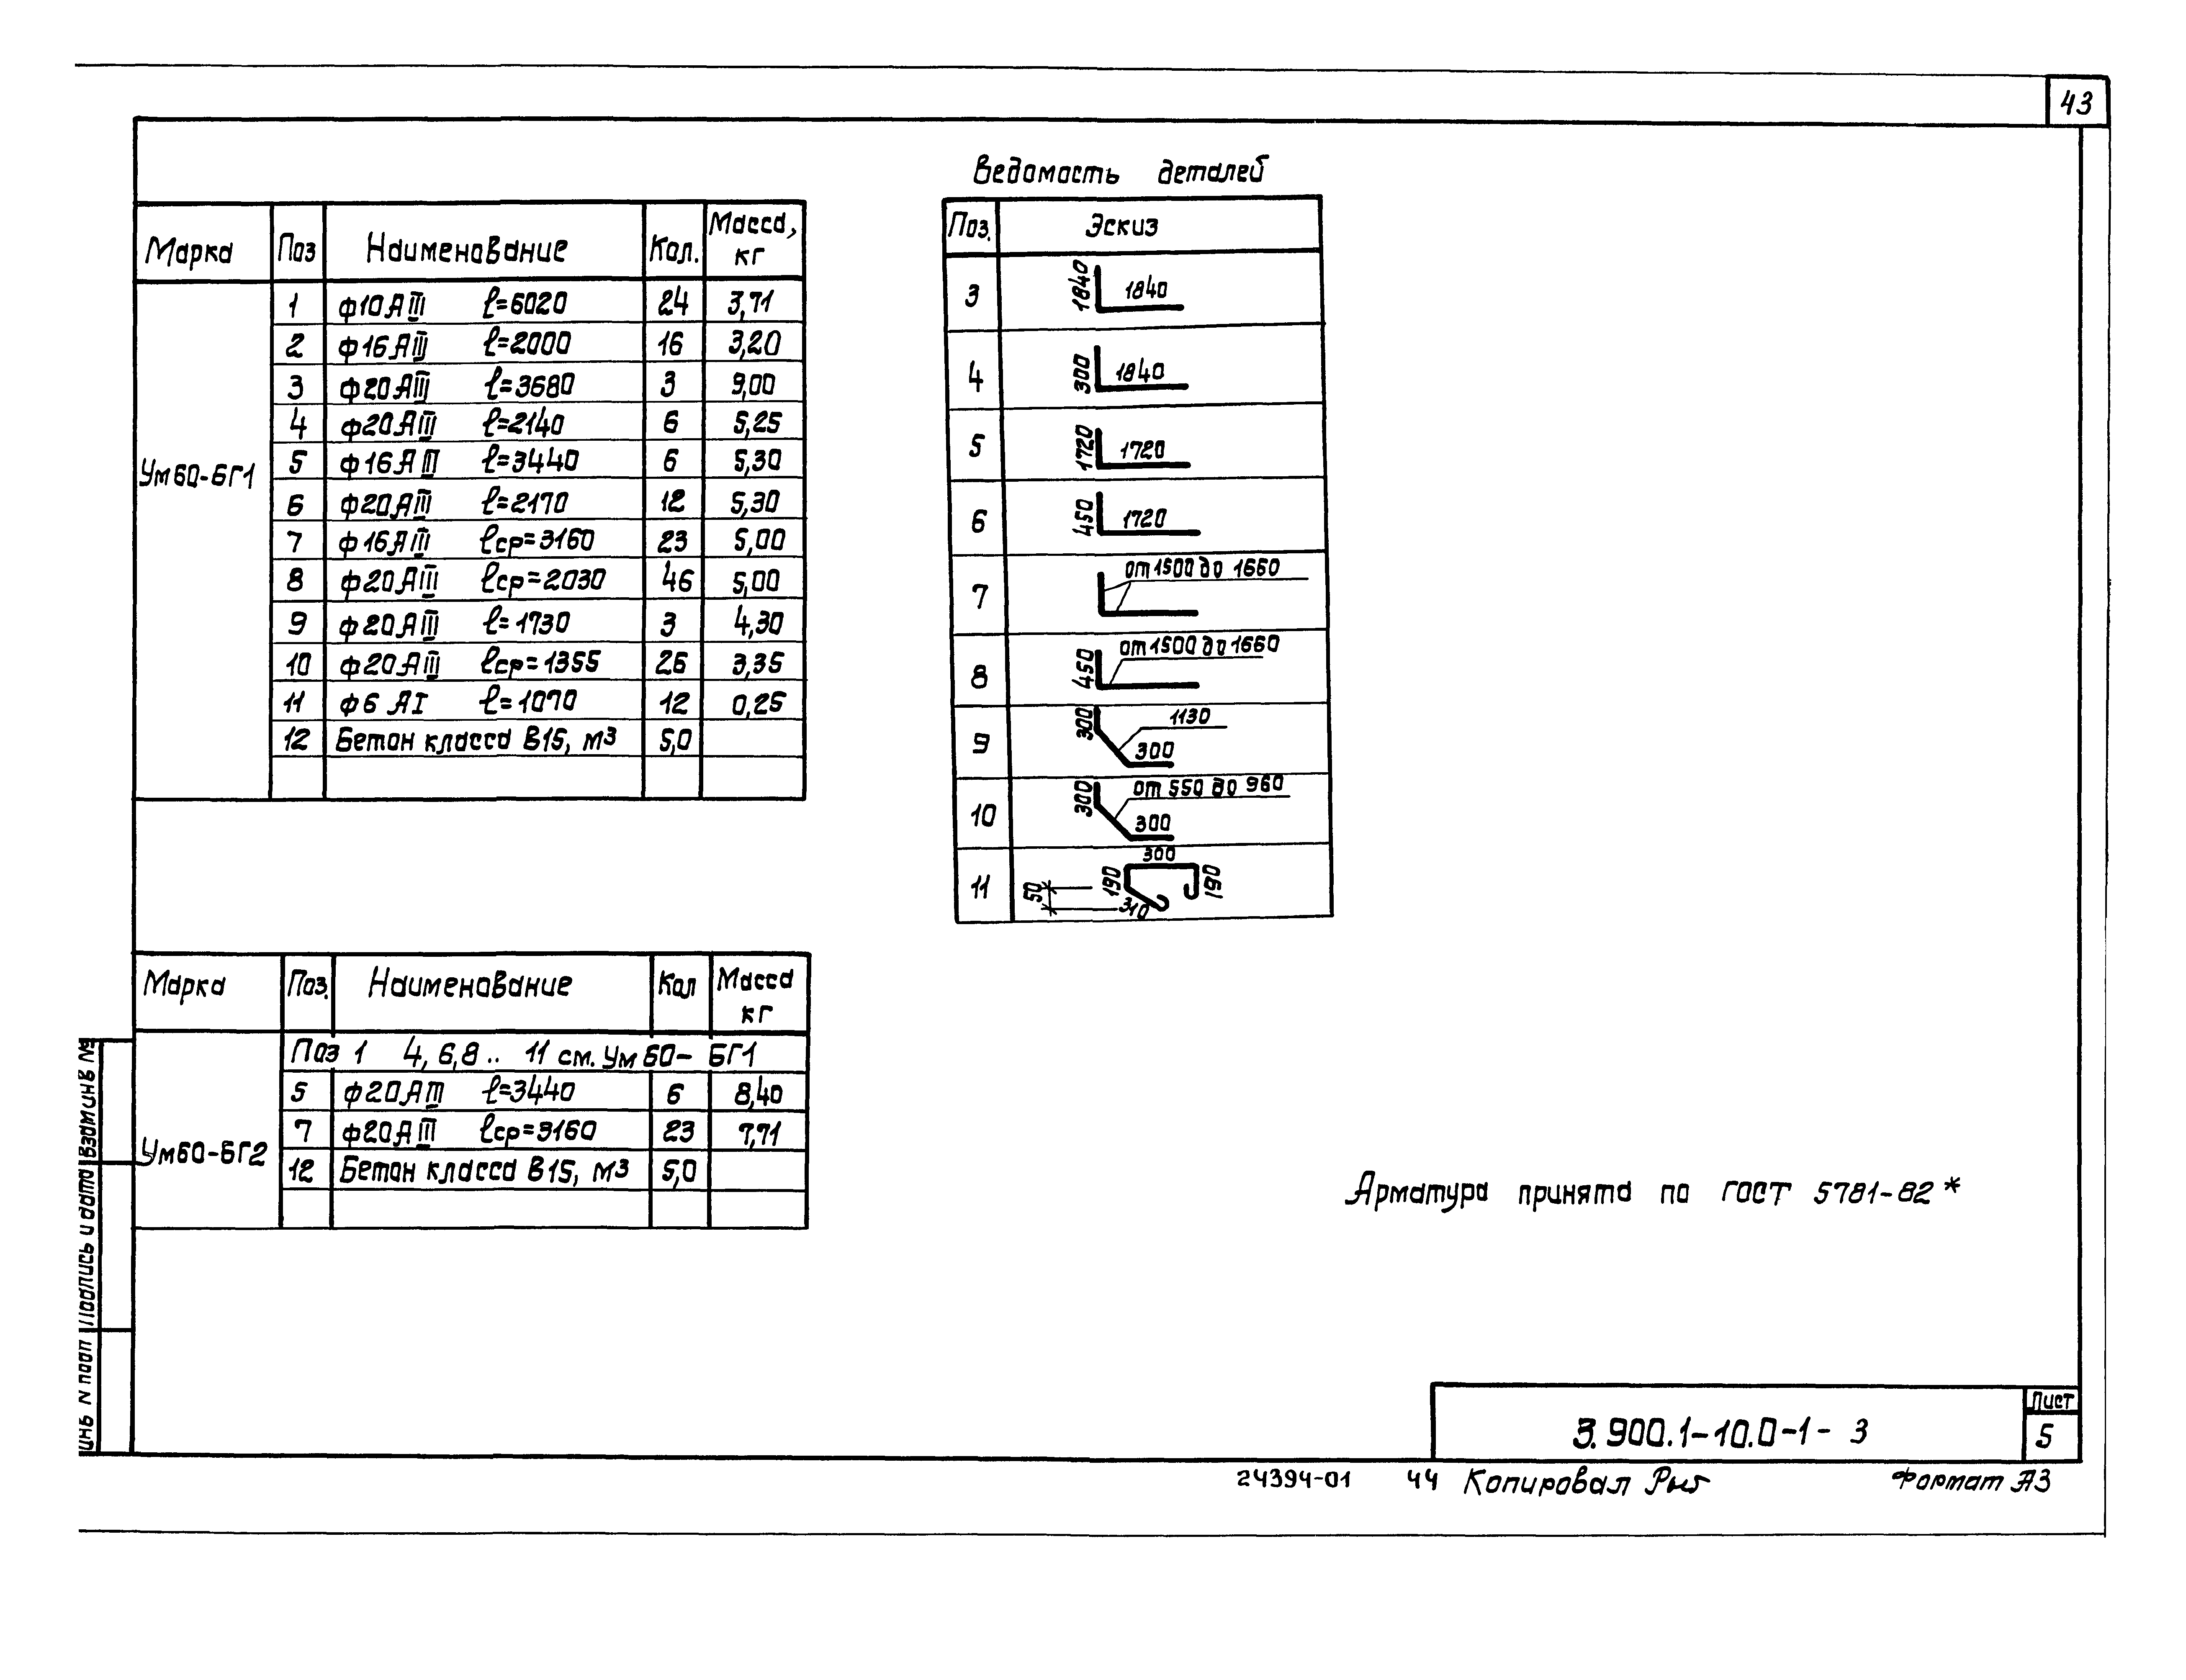 43
Марка Поз Наименование Кол. Масса, кг
Ум60-БГ1
1 ф10АIII ℓ=6020 24 3,71
2 ф16АIII ℓ=2000 16 3,20
3 ф20АIII ℓ=3680 3 9,00
4 ф20АIII ℓ=2140 6 5,25
5 ф16АIII ℓ=3440 6 5,30
6 ф20АIII ℓ=2170 12 5,30
7 ф16АIII ℓср=3160 23 5,00
8 ф20АIII ℓср=2030 46 5,00
9 ф20АIII ℓ=1730 3 4,30
10 ф20АIII ℓср=1355 26 3,35
11 ф6 АI ℓ=1070 12 0,25
12 Бетон класса В15, м3 5,0
Ведомость деталей
Поз. Эскиз
3 1840 1840
4 300 1840
5 1720 1720
6 450 1720
7 от 1500 до 1660
8 450 от 1500 до 1660
9 300 1130 300
10 300 от 550 до 960 300
11 300 190 190 50 310
Марка Поз. Наименование Кол Масса кг
Ум60-БГ2
Поз 1 4, 6,8.. 11 см. Ум 60- БГ1
5 ф20АIII ℓ=3440 6 8,40
7 ф20АIII ℓср=3160 23 7,71
12 Бетон класса В15, м3 5,0
Арматура принята по ГОСТ 5781-82*
Инв N подп Подпись и дата Взам инв №
3.900.1-10.0-1- 3
Лист
5
24394-01 44 Копировал Формат А3